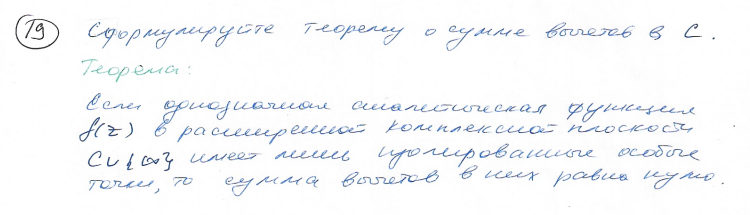 19 Сформулируйте теорему о сумме вычетов в C.
Теорема:
Если однозначная аналитическая функция
f(z) в расширенной комплексной плоскости
C∪{∞} имеет лишь изолированные особые
точки, то сумма вычетов в них равна нулю.